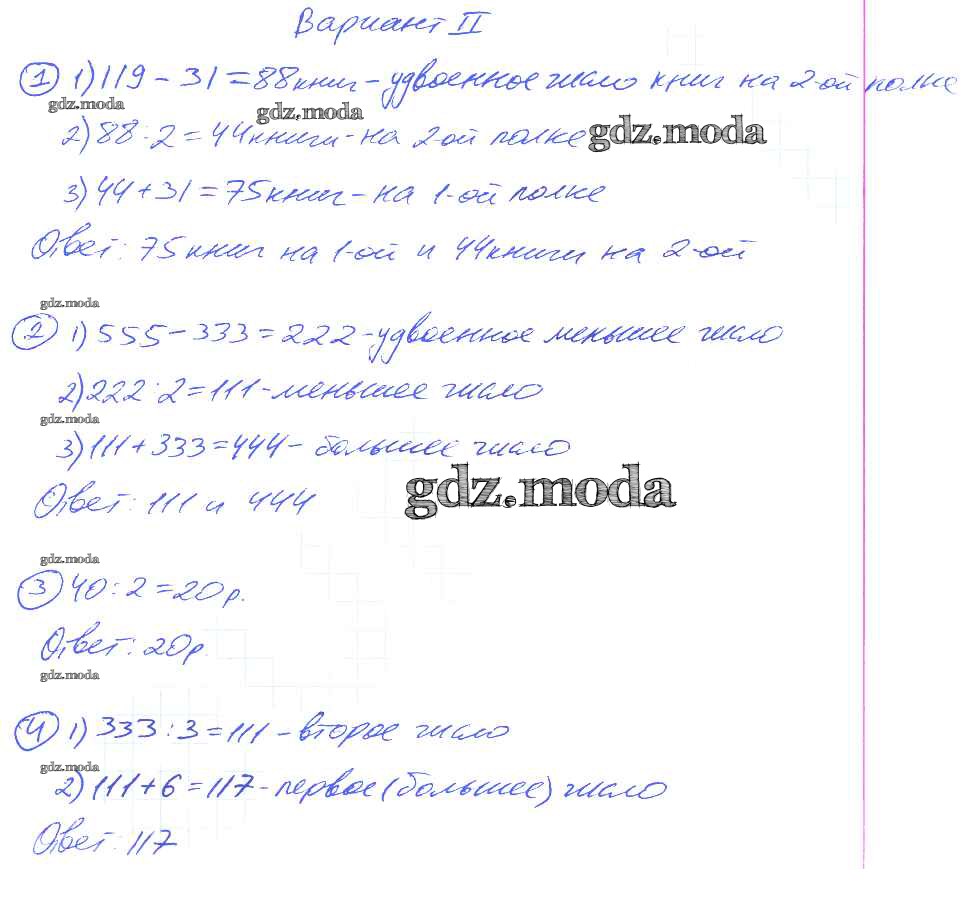 Вариант II
1 1) 119 - 31 = 88 книг - удвоенное число книг на 2-ой полке
gdz.moda
gdz.moda
2) 88 : 2 = 44 книги - на 2-ой полке
gdz.moda
3) 44 + 31 = 75 книг - на 1-ой полке
Ответ: 75 книг на 1-ой и 44 книги на 2-ой
gdz.moda
2 1) 555 - 333 = 222 - удвоенное меньшее число
2) 222 : 2 = 111 - меньшее число
gdz.moda
3) 111 + 333 = 444 - большее число
gdz.moda
Ответ: 111 и 444
gdz.moda
3 40 : 2 = 20 р.
Ответ: 20 р.
gdz.moda
4 1) 333 : 3 = 111 - второе число
gdz.moda
2) 111 + 6 = 117 - первое (большее) число
Ответ: 117